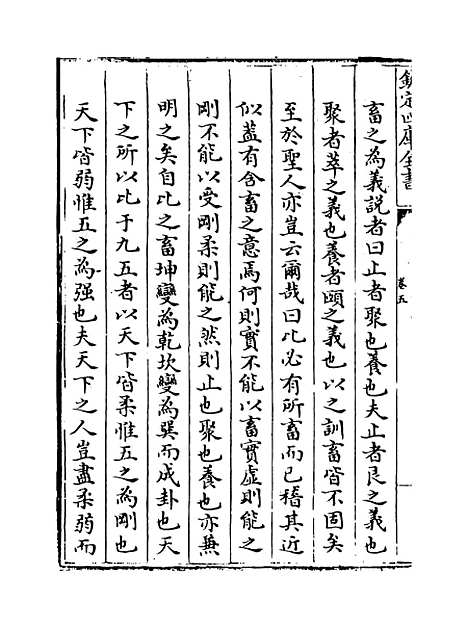 欽定四庫全書
卷五
畜之為義說者曰止者聚也養也夫止者艮之義也
聚者萃之義也養者頤之義也以之訓畜皆不固矣
至於聖人亦豈云爾哉曰比必有所畜而已稽其近
似蓋有含畜之意焉何則實不能以畜實虛則能之
剛不能以受剛柔則能之然則止也聚也養也亦兼
明之矣自比之畜坤變為乾坎變為巽而成卦也天
下之所以比于九五者以天下皆柔惟五之為剛也
天下皆弱惟五之為强也夫天下之人豈盡柔弱而